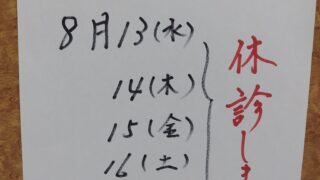 8月13(水)
14(木)
15(金)
16(土)
休診しま